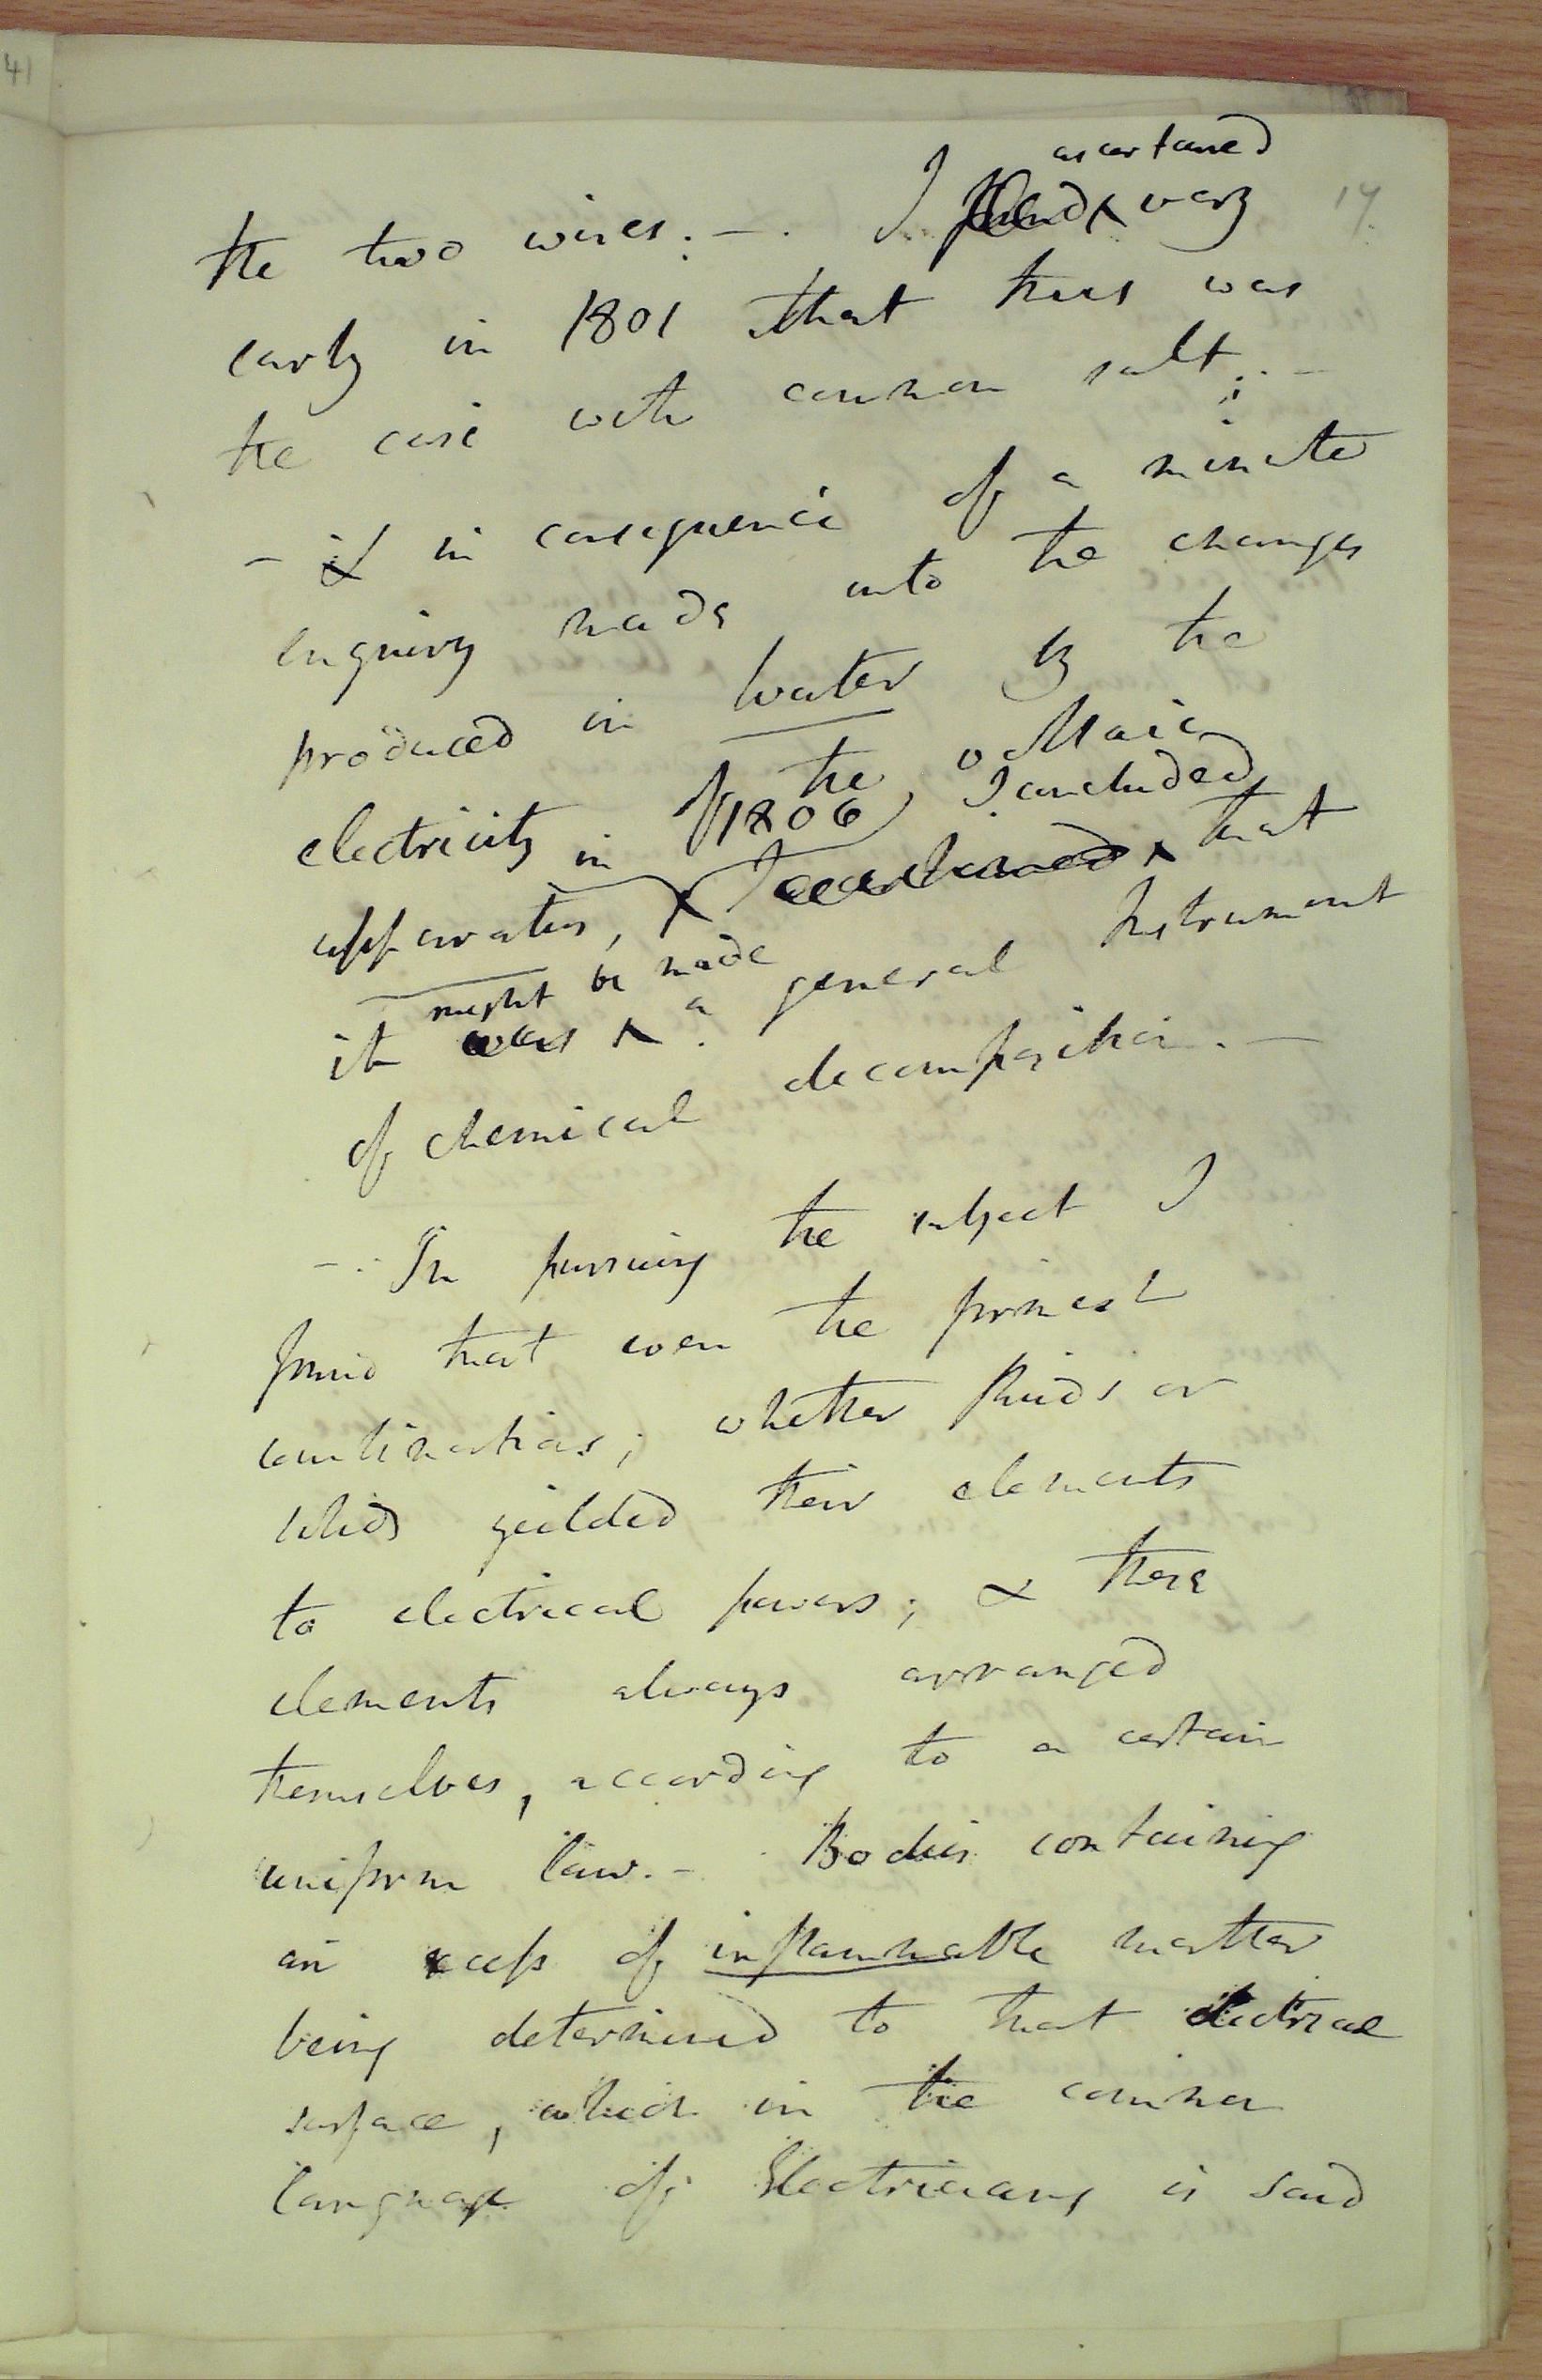 41
ascertained
the two wires. — . I found very 17
early in 1801 that this was
the case with common salt; . —
— & in consequence of a minute
enquiry made into the changes
produced in water by the
electricity of the Voltaic
in 1806, I concluded
apparatus, I ascertained that
might be made
it was a general Instrument
of chemical decomposition. —
— . In pursuing the subject I
found that even the firmest
combinations; whether fluids or
solids yielded their elements
to electrical powers; & these
elements always arranged
themselves, according to a certain
uniform law. — Bodies containing
an excess of inflammable matter
being determined to that electrical
surface, which in the common
language of Electricians is said